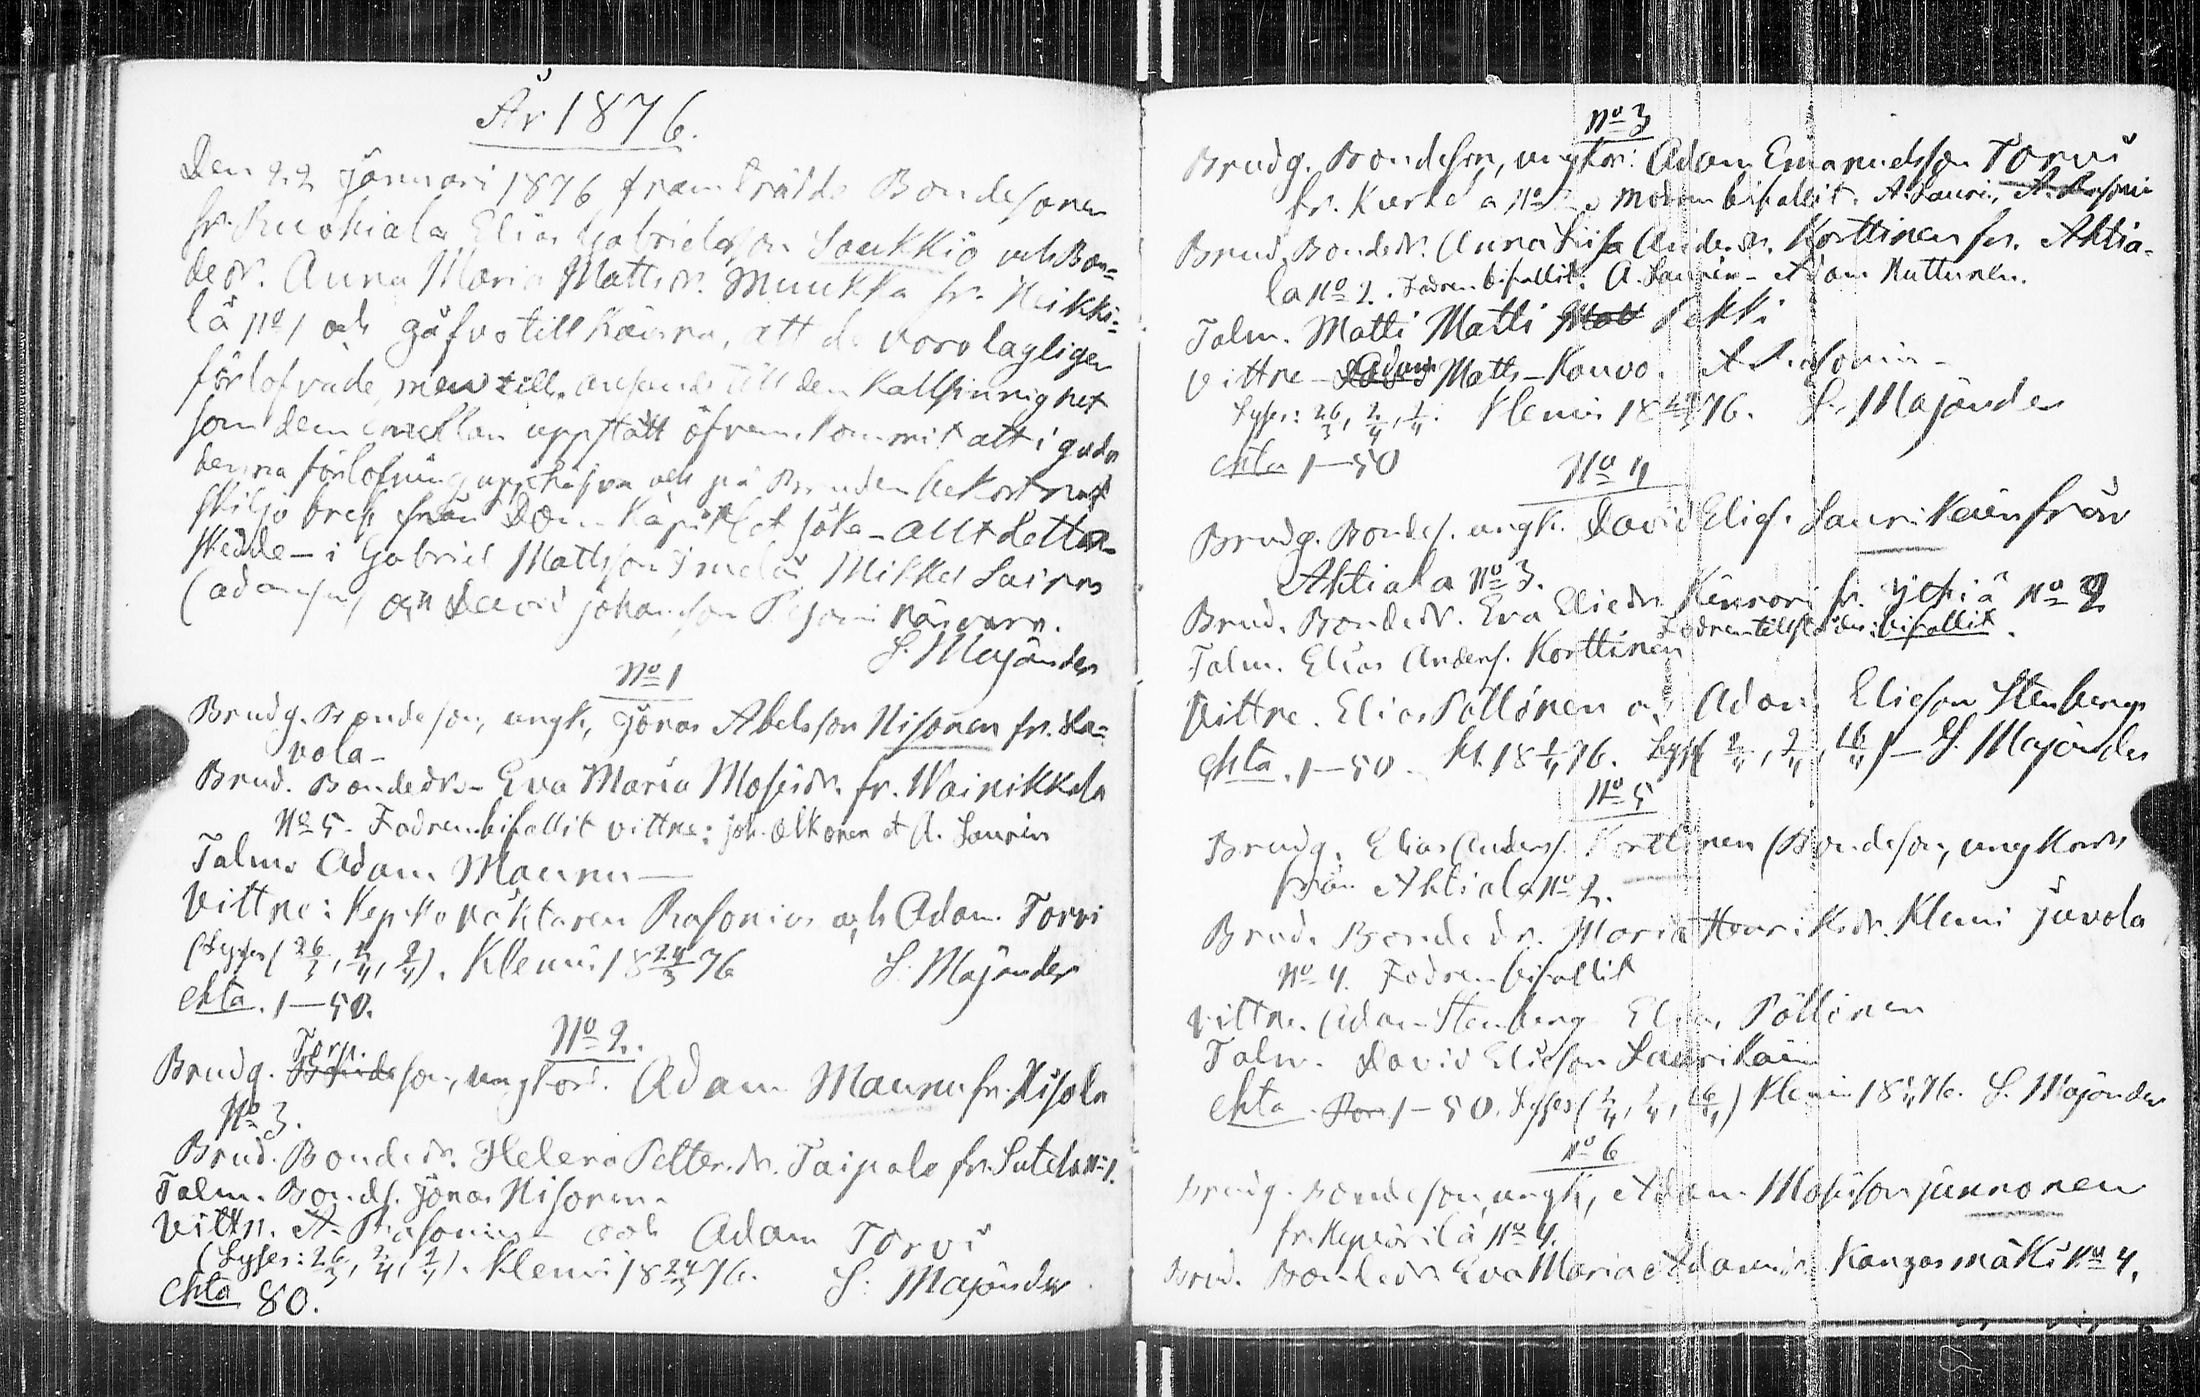 År 1876.
Den 22 Januari 1876 framträdde Bondesonen
fr. Ruokiala Elias Gabrielsson Saukkio och Bon=
dedr. Anna Maria Mattsdr. Muukka fr. Heikki=
lä No 1 och gåfvo tillkänna, att de voro lagligen
förlofvade, men till den kallsinnighet
som dem emellan uppstått öfverenskommit att i godo
denna förlofning upphäfva och på Bruden bekostnad
skiljobref från Domkapitlet söka - allt detta
skedde - i Gabriel Mattsson Mikkel Saira
(Adamsson) och David Johansson närvaro.
S. Majander
No 1
Brudg. Bondeson, ungk, Jonas Abelsson Hisonen fr. La=
vola -
Brud. Bondedr. - Eva Maria Mosisdr. fr. Wainikkala
No 5. Fadren bifallit vittne: Joh. Olkonen et A. Laurén
Talm. Adam Maunu —
Vittne: Rasonius och Adam Torvi
(Lyses (26/3, 2/4, 9/4). Klemis 18 24/3 76 S. Majander
Ekta. 1—50.
No 2.
Torp.
Brudg. Bondeson, ungkarl. Adam Maunu fr. Hisola
No 3.
Brud. Bondedr. Helena Petter.dr. Taipale fr. Sutela No 1.
Talm. Bonds. Jonas Hisonen
Vittn. A. Rasonius - och Adam Torvi
(Lyses: 26/3, 2/4, 9/4). Klemis 18 24/3 76. S. Majander
Ekta 80.
No 3
Brudg. Bondeson, ungkar: Adam Emanuelsson Torvi
fr. No modren bifallit. A. Laurén, A. Rasonius
Brud. Bondedr. Anna Lisa Andersdr. Korttinen fr. Ahtia-
la No 2. Fadren bifallit. A. Laurén - Adam Huttunen.
Talm. Matti Matti Matt Pekki
Vittne - Adam Matts - Kouvo. A. Rasonius -
Lyses: 26/3, 2/4, 9/4. Klemis 18 76. S. Majander
Ekta 1—50
No 4
Brudg. Bondes. ungk. David Elies. Laurikain från
Ahtiala No 3.
Brud. Bondedr. Eva Eliedr. fr. No 2
Fadren tillstädes bifallit.
Talm. Elias Anders. Korttinen
Vittne. Elias Pöllönen och Adam Elieson Stenberg
Ekta. 1—50. Kl. 18 76. Lyses - S. Majander
No 5
Brudg. Elias Anders. Korttinen (Bondeson, ungkarl
från Ahtiala No 2.
Brud. Bondedr. Maria Henriksdr. Klemi Juvola
No 4. Fadren bifallit
Vittne. Adam Stenberg Elias Pöllönen
Talm. David Elieson Laurikain
Ekta. 1—50. Lyses Klemis 18 76. S. Majander
No 6
Brudg. Bondeson, ungk, Adam Mosisson Junnonen
fr. No 4.
Brud. Bondedr. Eva Maria Adamsdr. Kangasmäki No 4.